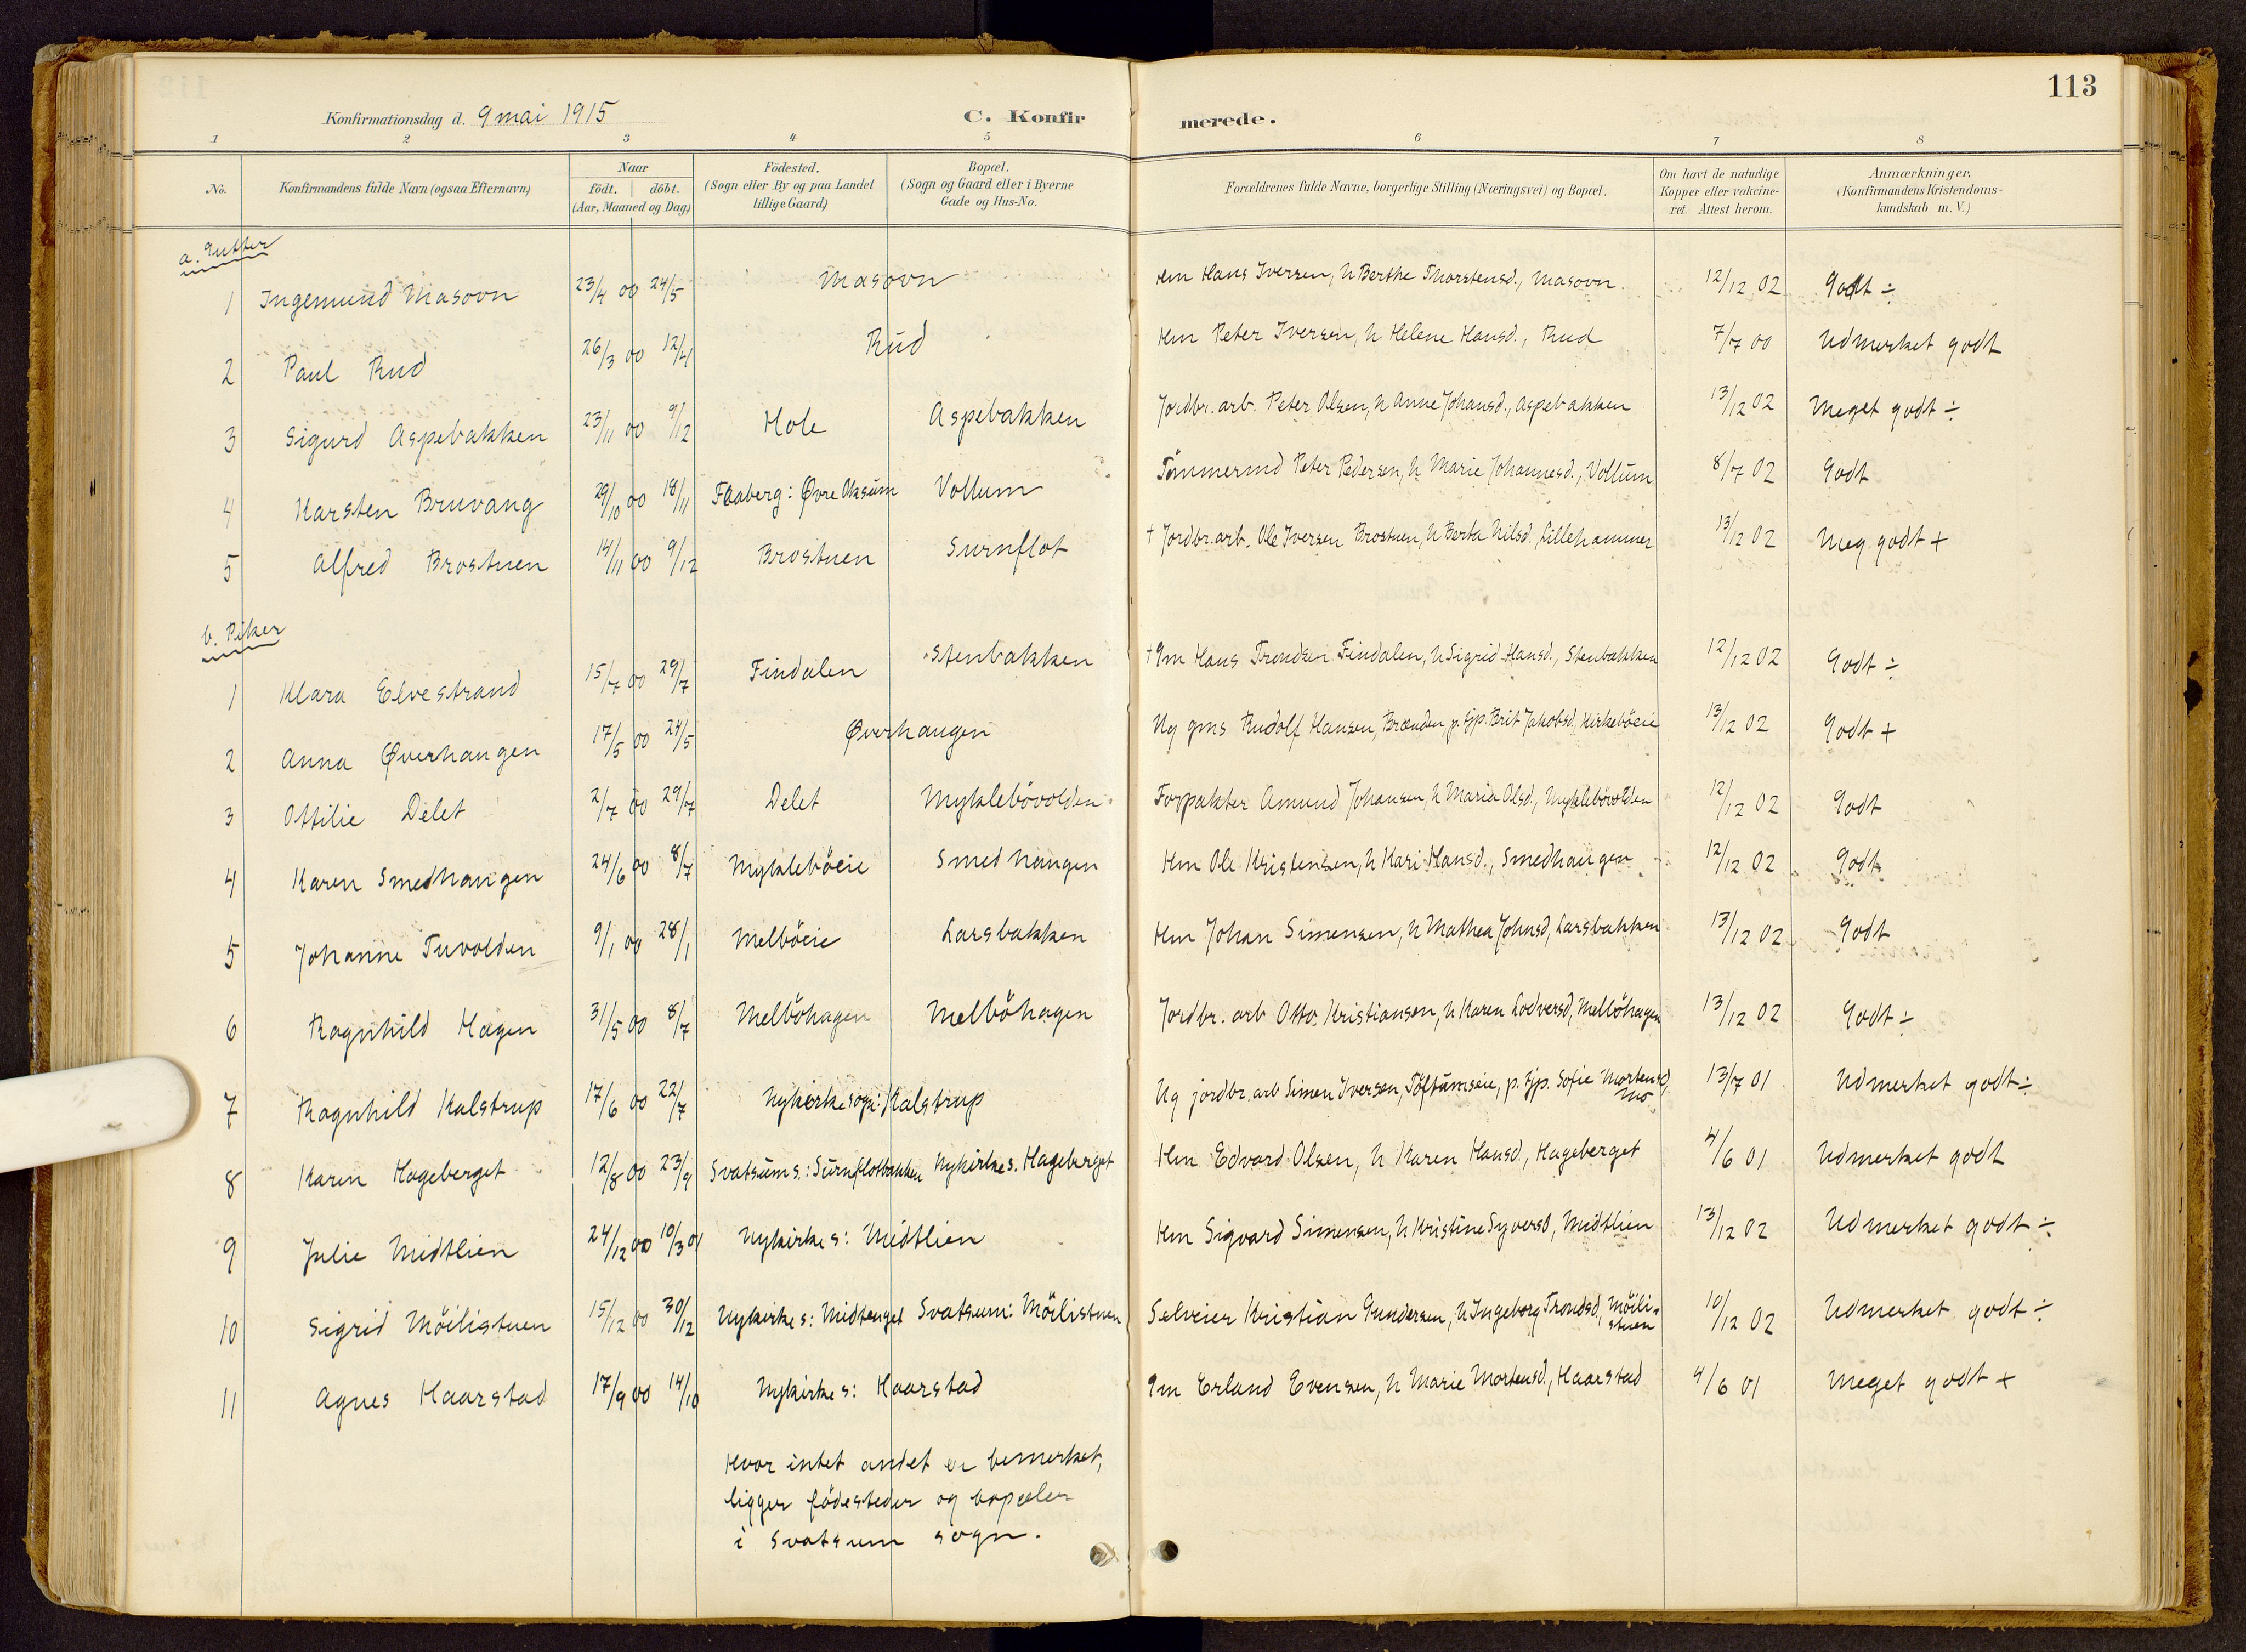 113
Konfirmationsdag d. 9 mai 1915
C. Konfirmerede.
1 2 3 4 5 6 7 8
No. Konfirmandens fulde Navn (ogsaa Efternavn) Naar födt. döbt. (Aar, Maaned og Dag) Födested. (Sogn eller By og paa Landet tillige Gaard) Bopæl. (Sogn og Gaard eller i Byerne Gade og Hus-No. Forældrenes fulde Navne, borgerlige Stilling (Næringsvei) og Bopæl. Om havt de naturlige Kopper eller vakcineret. Attest herom. Anmærkninger. (Konfirmandens Kristendomskundskab m. V.)
a. Gutter
1 Ingemund Masovn 23/4 00 24/5 Masovn Hm Hans Iversen, h Berthe Thorstensd., Masovn. 12/12 02 Godt ÷
2 Paul Rud 26/3 00 12/4 Rud Hm Peter Iversen, h Helene Hansd., Rud 7/7 00 Udmerket godt
3 Sigurd Aspebakken 23/11 00 9/12 Hole Aspebakken Jordbr. arb. Peter Olsen, h Anne Johansd., Aspebakken 13/12 02 Meget godt ÷
4 Karsten Bruvang 29/10 00 18/11 Faaberg: Øvre Oksum Vollum Tömmermd Peter Pedersen, h Marie Johannesd., Vollum 8/7 02 Godt
5 Alfred Brostuen 14/11 00 9/12 Brostuen Surnflot † Jordbr. arb. Ole Iversen Brostuen, h Berta Nilsd. Lillehammer 13/12 02 Meg. godt +
b. Piker
1 Klara Elvestrand 15/7 00 29/7 Findalen Stenbakken † Gm Hans Trondsen Findalen, h Sigrid Hansd., Stenbakken 12/12 02 Godt ÷
2 Anna Øverhaugen 17/5 00 24/5 Øverhaugen Ug gms Rudolf Hansen, Brænden, p. Ejp. Brit Jakobsd. Kirkeböeie 13/12 02 Godt +
3 Ottilie Delet 2/7 00 29/7 Delet Myklebövolden Forpakter Amund Johansen, h Maria Olsd., Myklebövolden 12/12 02 Godt
4 Karen Smedhaugen 24/6 00 8/7 Mykleböeie Smedhaugen Hm Ole Kristensen, h Kari Hansd., Smedhaugen 12/12 02 Godt
5 Johanne Tuvolden 9/1 00 28/1 Melböeie Larsbakken Hm Johan Simensen, h Mathea Johnsd, Larsbakken 13/12 02 Godt
6 Ragnhild Hagen 31/5 00 8/7 Melböhagen Melböhagen Jordbr. arb Otto Kristiansen, h Karen Lodversd, Melböhagen 13/12 02 Godt ÷
7 Ragnhild Kalstrup 17/6 00 22/7 Nykirke sogn: Kalstrup Ug jordbr. arb Simen Iversen, Töftumseie, p. Ejp. Sofie Mortensd, Mo 13/7 01 Udmerket godt ÷
8 Karen Hageberget 12/8 00 23/9 Svatsum s.: Surnflotbakken Nykirke s. Hageberget Hm Edvard Olsen, h Karen Hansd., Hageberget 4/6 01 Udmerket godt
9 Julie Midtlien 24/12 00 10/3 01 Nykirke s: Midtlien Hm Sigvard Simensen, h Kristine Syversd, Midtlien 13/12 02 Udmerket godt ÷
10 Sigrid Möilistuen 15/12 00 30/12 Nykirke s: Midtenget Svatsum: Möilistuen Selveier Kristian Gundersen, h Ingeborg Trondsd., Möilistuen 10/12 02 Udmerket godt ÷
11 Agnes Haarstad 17/9 00 14/10 Nykirke s: Haarstad Gm Erland Evensen, h Marie Mortensd., Haarstad 4/6 01 Meget godt +
Hvor intet andet er bemerket,
ligger födesteder og bopæler
i Svatsum sogn.